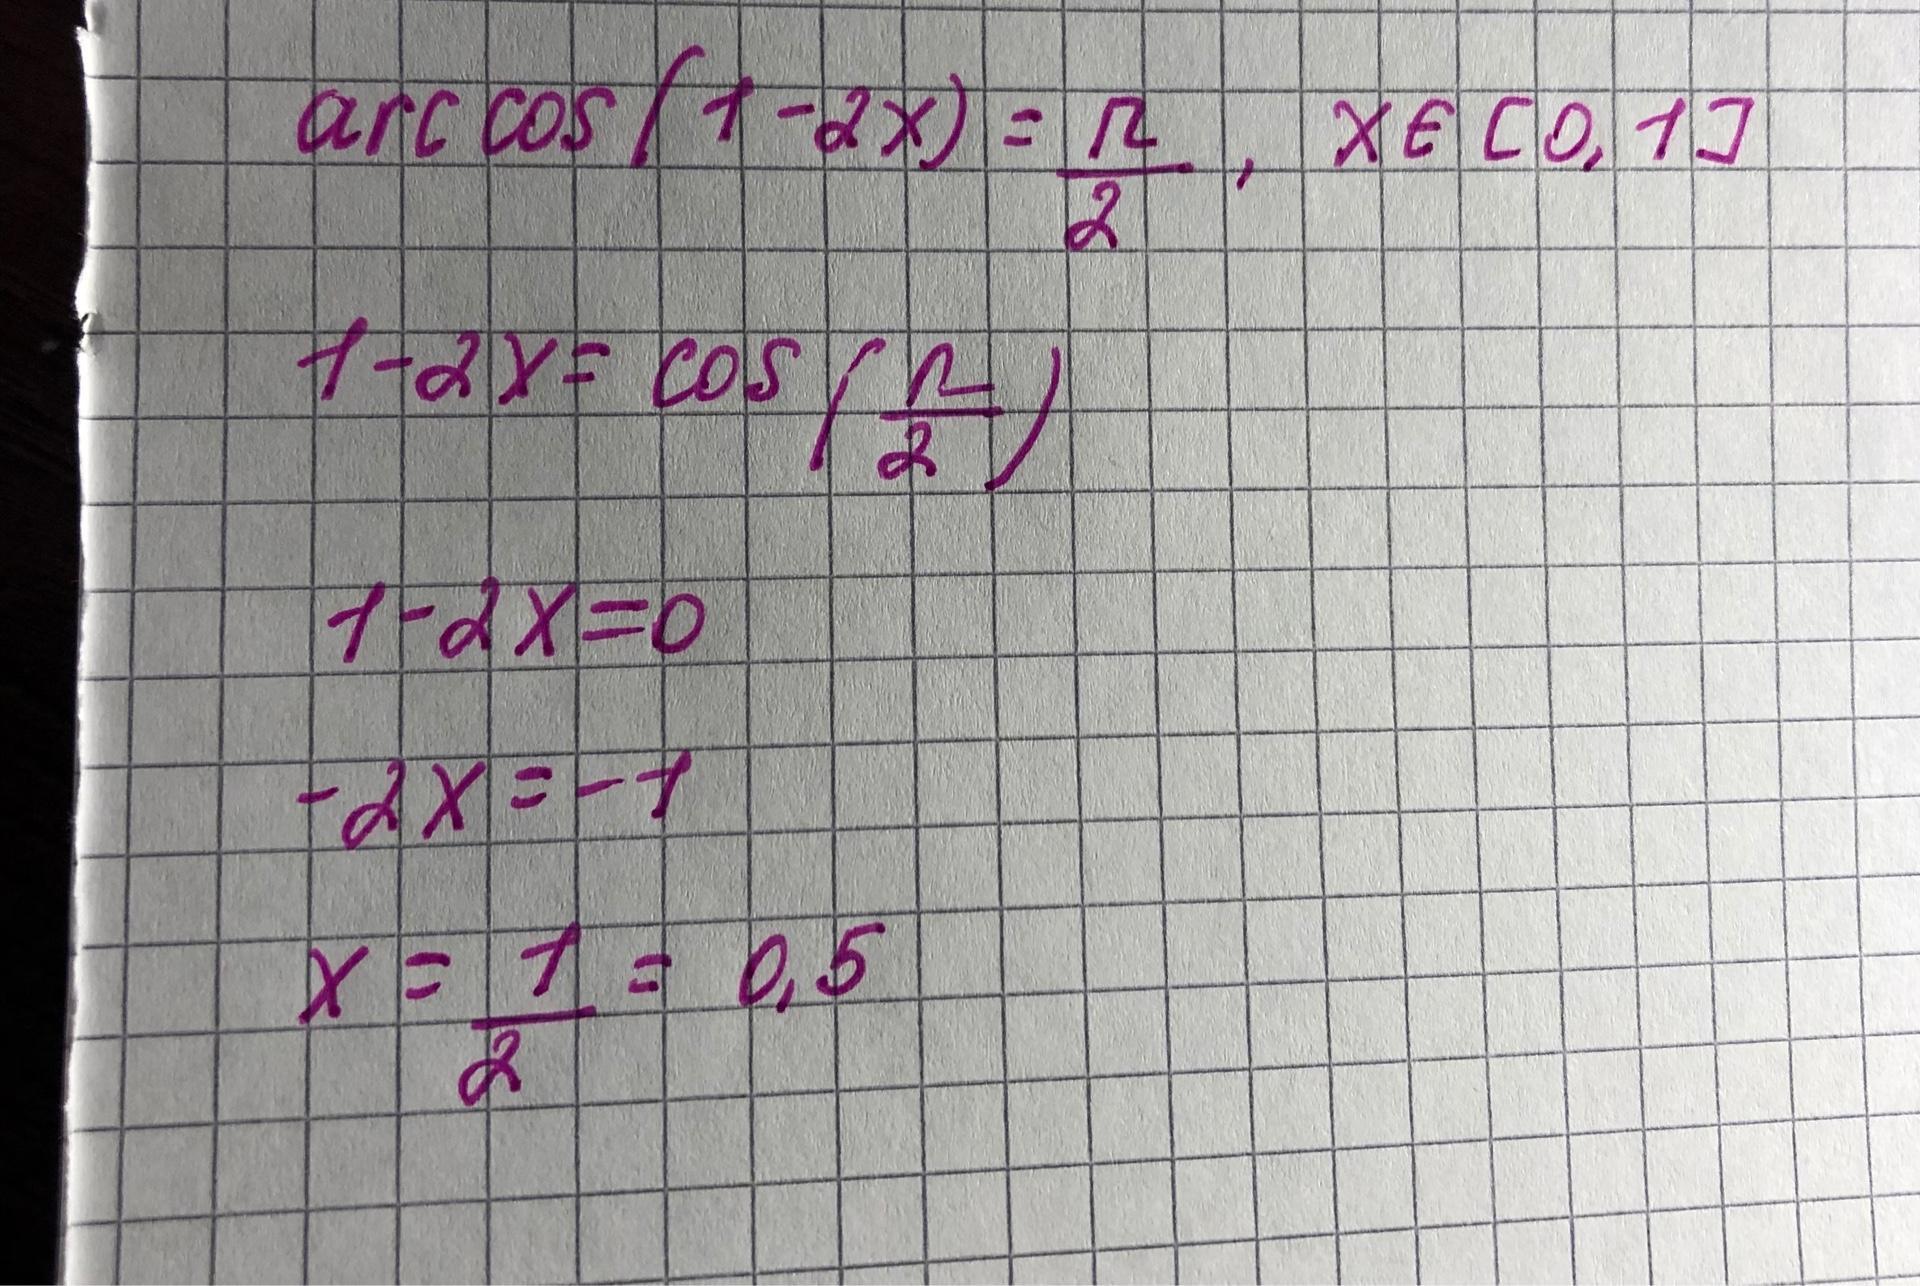 arccos(1-2x) = π/2, x∈[0,1]
1-2x = cos(π/2)
1-2x=0
-2x=-1
x = 1/2 = 0,5